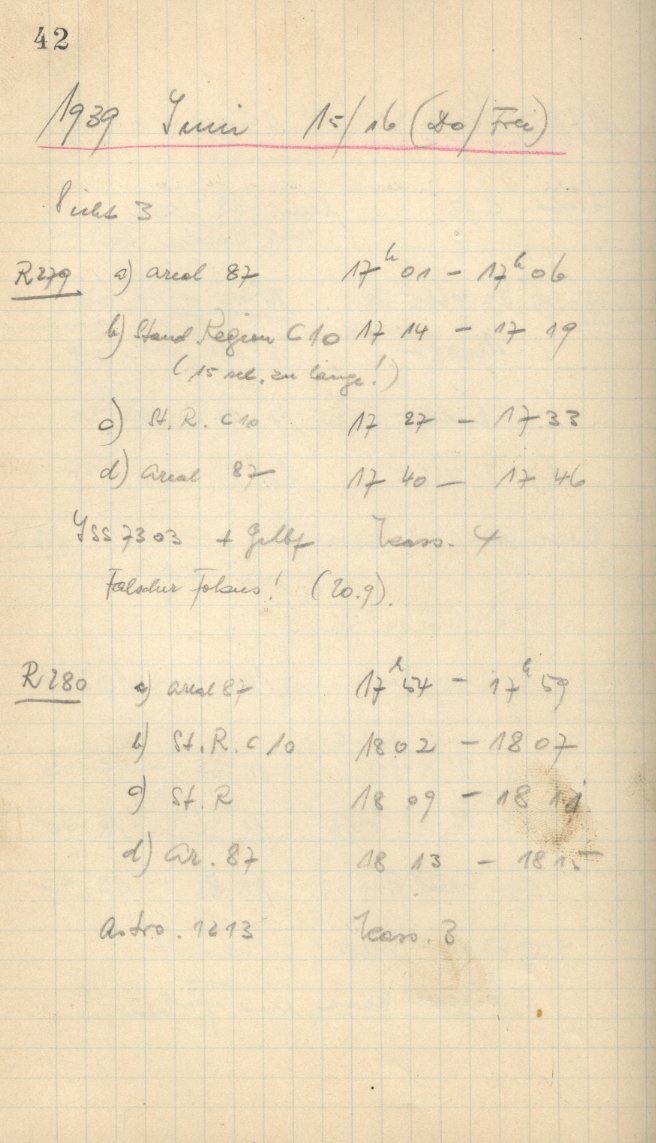 42
1939 Juni 15/16 (Do/Frei)
Sicht 3
R279 a) Areal 87 17h 01 - 17h 06
b) Stand. Region C10 17 14 - 17 19
(15 sek. zu lange!)
c) St. R. C10 17 27 - 17 33
d) Areal 87 17 40 - 17 46
ISS 7303 + Gelbf. Kass. 4
Falscher Fokus! (20.9).
R280 a) Areal 87 17h 54 - 17h 59
b) St. R. C10 18 02 - 18 07
c) St. R 18 09 - 18 11
d) Ar. 87 18 13 - 18 15
Astro. 1213 Kass. 3